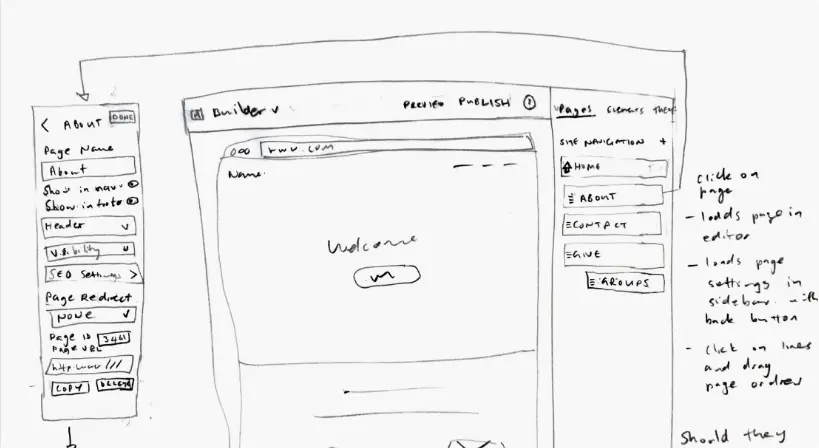 < ABOUT DONE
Page Name
About
Show in nav
Show in footer
Header
Visibility
SEO Settings >
Page Redirect
NONE
Page ID 3461
Page URL
http www ///
COPY DELETE
Builder
PREVIEW PUBLISH
www.com
Name
Welcome
Pages Elements Theme
SITE NAVIGATION +
HOME
ABOUT
CONTACT
GIVE
GROUPS
Click on
page
- loads page in
editor
- loads page
settings in
sidebar with
back button
- Click on lines
and drag
page orders
Should they